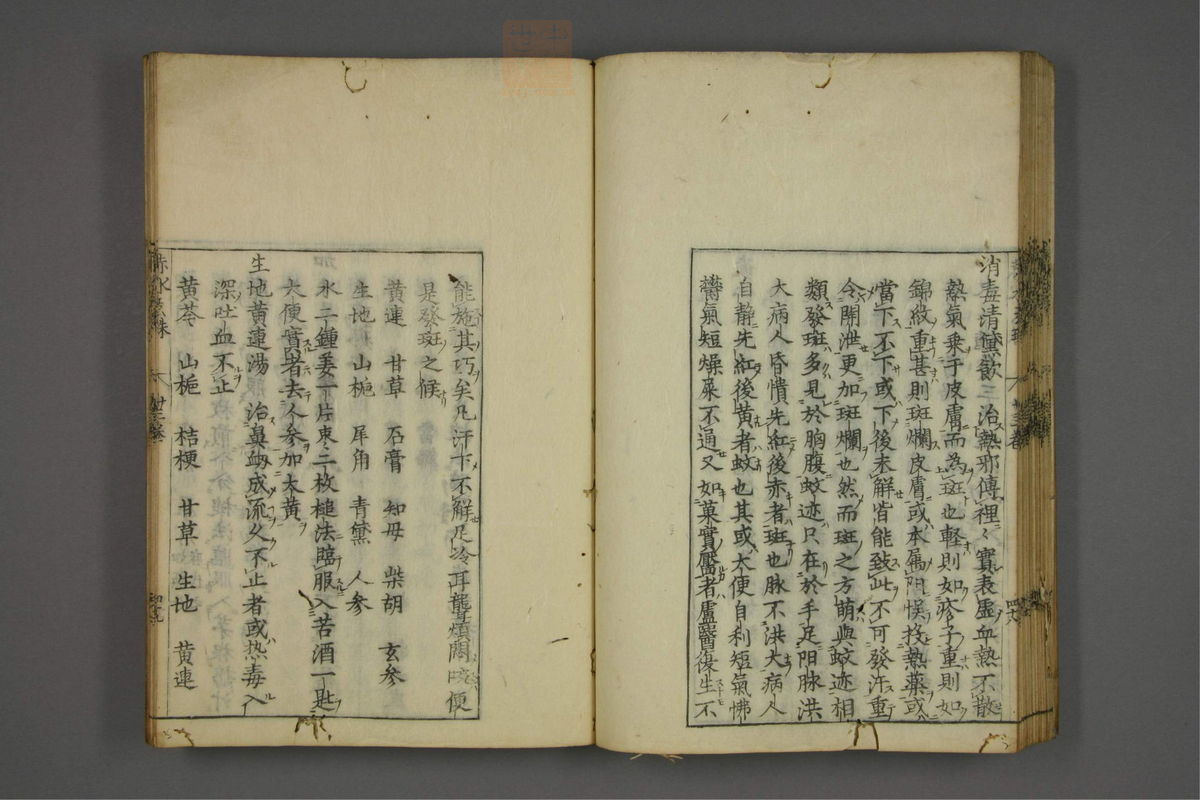 消毒清黛飲 三 治熱邪傳裡〻實表虛血熱不散
熱氣乗于皮膚而為斑也軽則如疹子重則如
錦紋重甚則斑爛皮膚或本屬陽悞投熱薬或
當下不下或下後未解皆能致此不可發汗重
令開泄更加斑爛也然而斑之方萌與蚊迹相
類發斑多見於胸腹蚊迹只在於手足陽脉洪
大病人昏憒先紅後赤者斑也脉不洪大病人
自静先紅後黄者蚊也其或大便自利短氣怫
鬱氣短燥屎不通又如菓實黶者盧醫復生不
能施其巧矣凡汗下不解足冷耳聾煩悶咳便
是發斑之候
黄連 甘草 石膏 知母 柴胡 玄参
生地 山梔 犀角 青黛 人参
水二鍾姜一片枣二枚槌法臨服入苦酒一匙
大便實者去人参加大黄
生地黄連湯 治鼻衂成流久不止者或热毒入
深吐血不止
黄芩 山梔 桔梗 甘草 生地 黄連
赤水玄珠